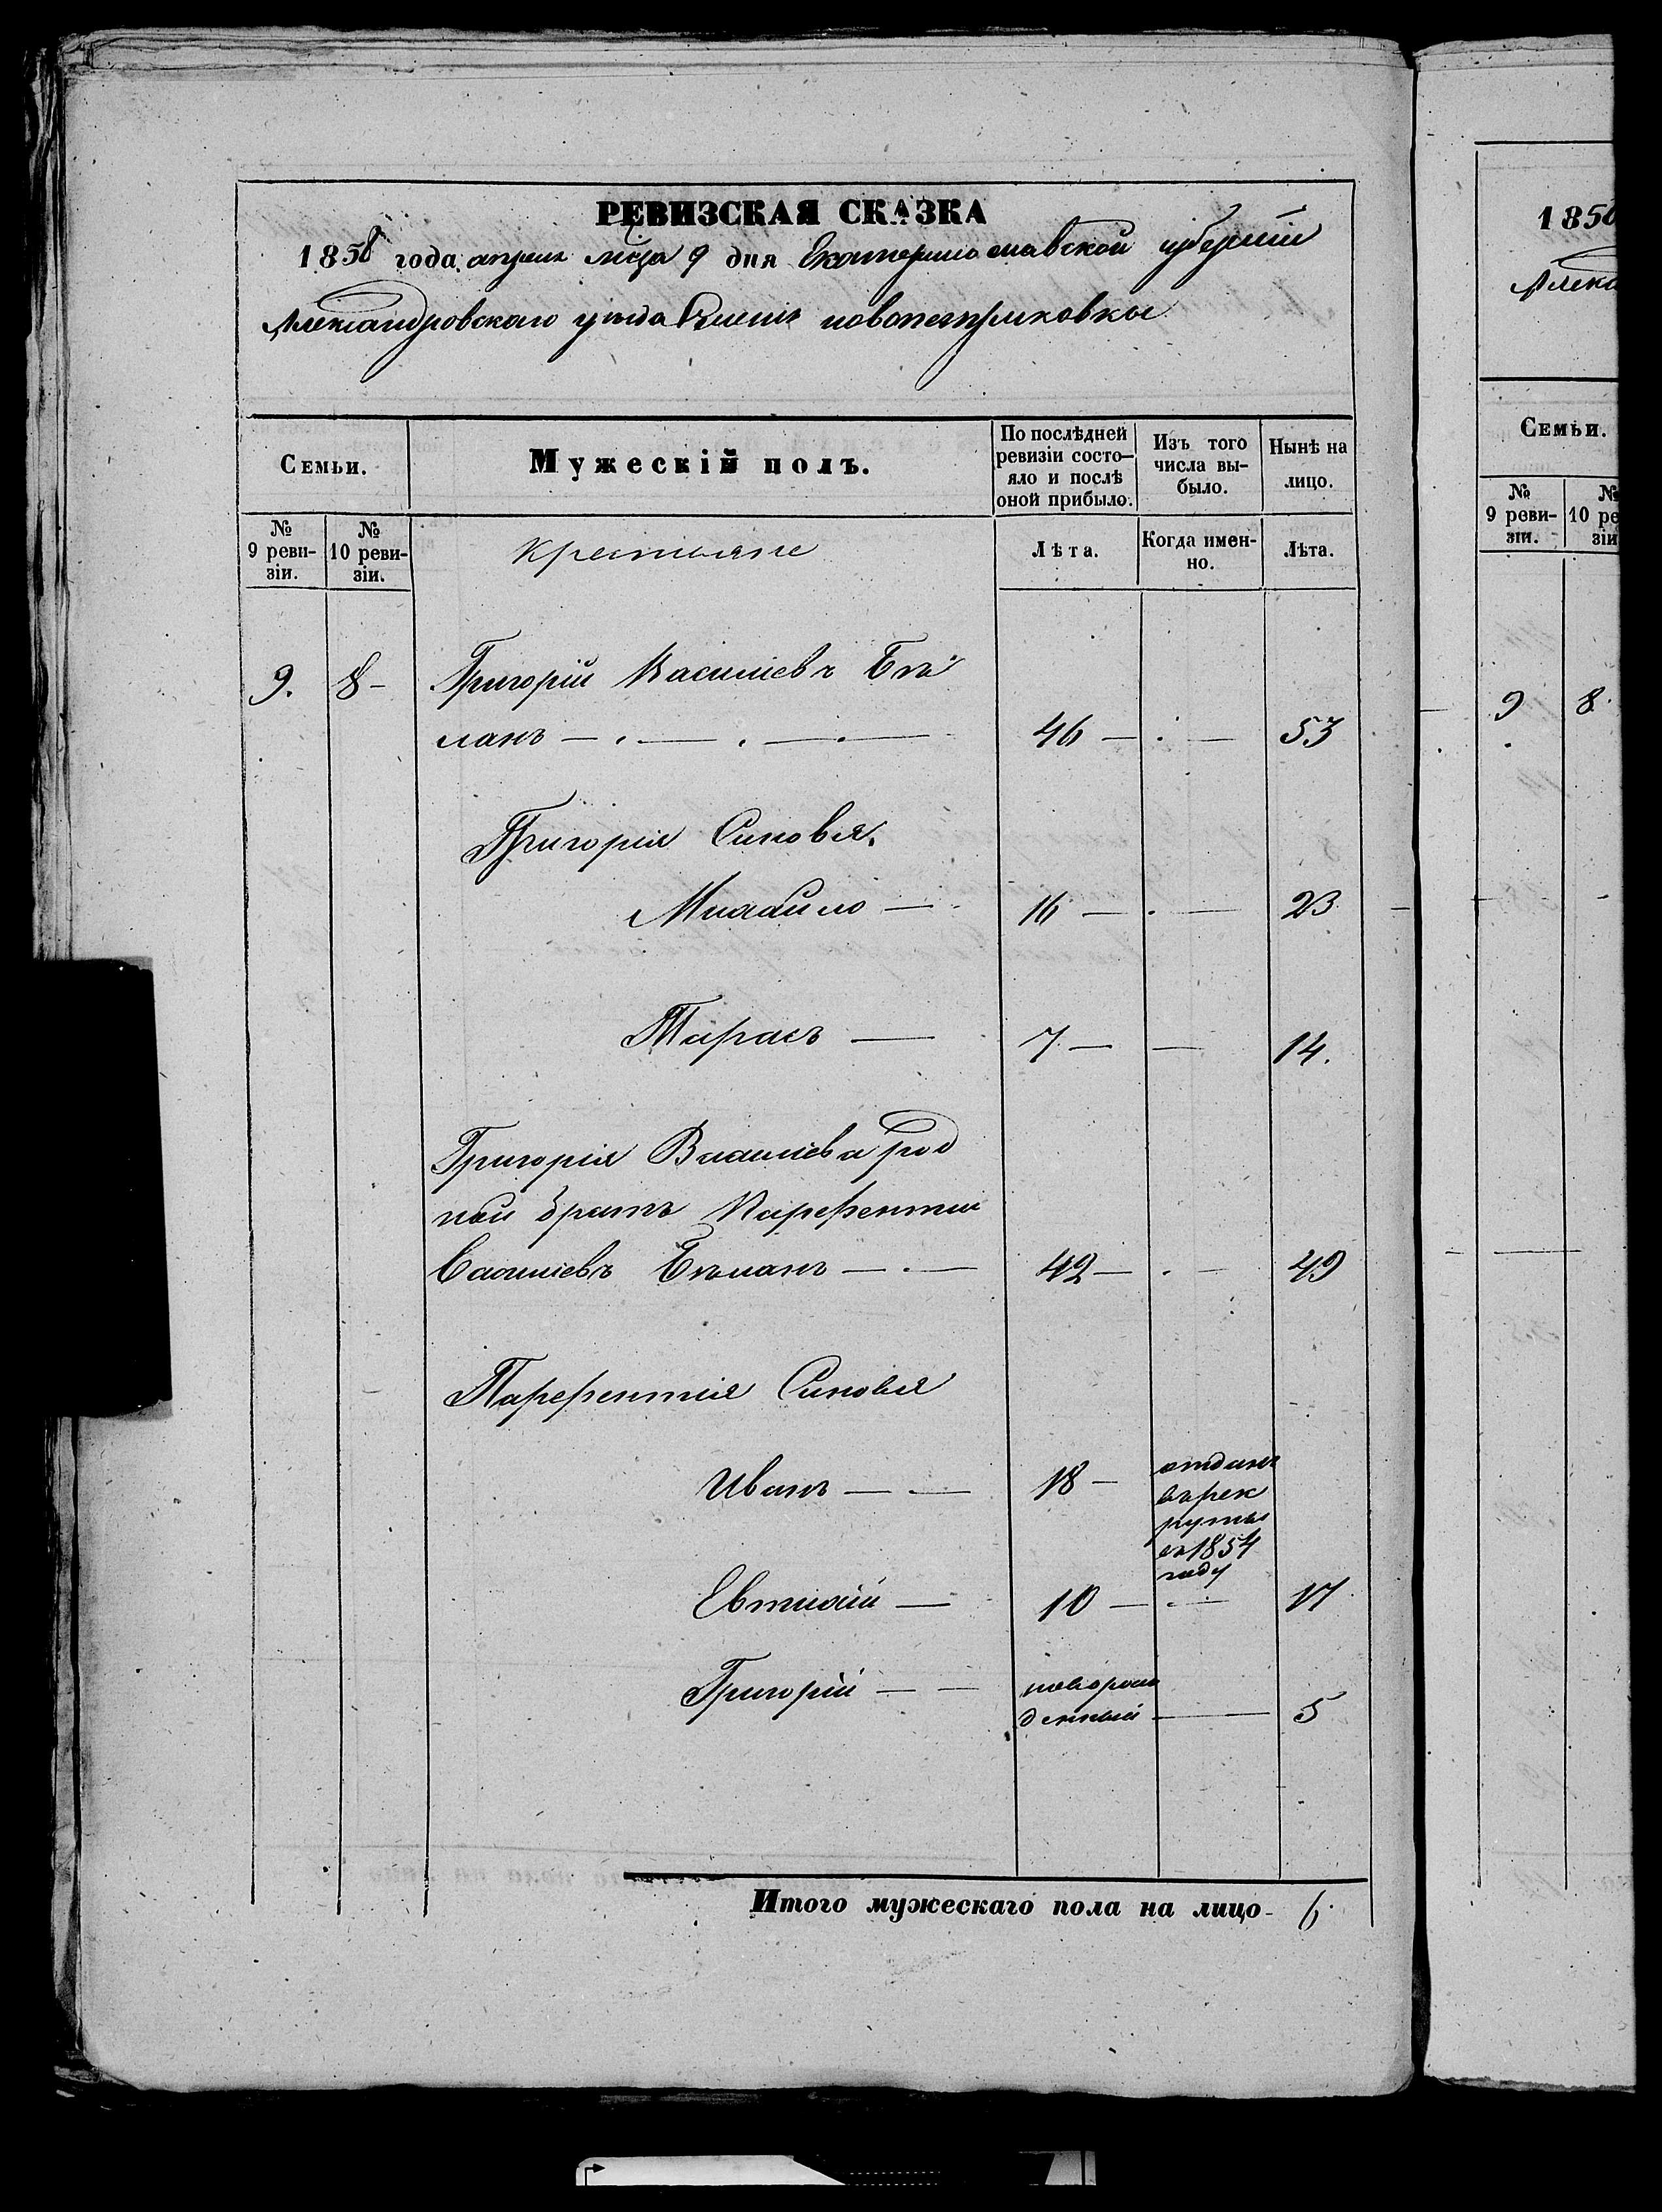 РЕВИЗСКАЯ СКАЗКА
1858 года апреля мсца 9 дня Екатеринославской губернии
Александровского уезда новопетриковки
Семьи.
Мужескій полъ.
По послѣдней ревизіи состо-яло и послѣ оной прибыло.
Изъ того числа вы-было.
Нынѣ на лицо.
№ 9 реви-зіи.
№ 10 реви-зіи.
крестьяне
Лѣта.
Когда имен-но.
Лѣта.
9. 8- Григорій Василіевъ Бѣ
ланъ — 46 — 53
Григорія Синовя.
Михайло — 16 — 23
Тарасъ — 7 — 14.
Григорія Василіева род
ной братъ Парфентий
Василіевъ Бѣланъ — 42 — 49
Парфентія Синовя
Иванъ — 18 —
отданъ
въ рек
руты
въ 1854
году
Евтихій — 10 — 17
Григорій — новорож
денный — 5
Итого мужескаго пола на лицо - 6.
1850
Алекса
Семьи.
№ 9 реви-зіи.
№ 10 ре
зіи
9 8.